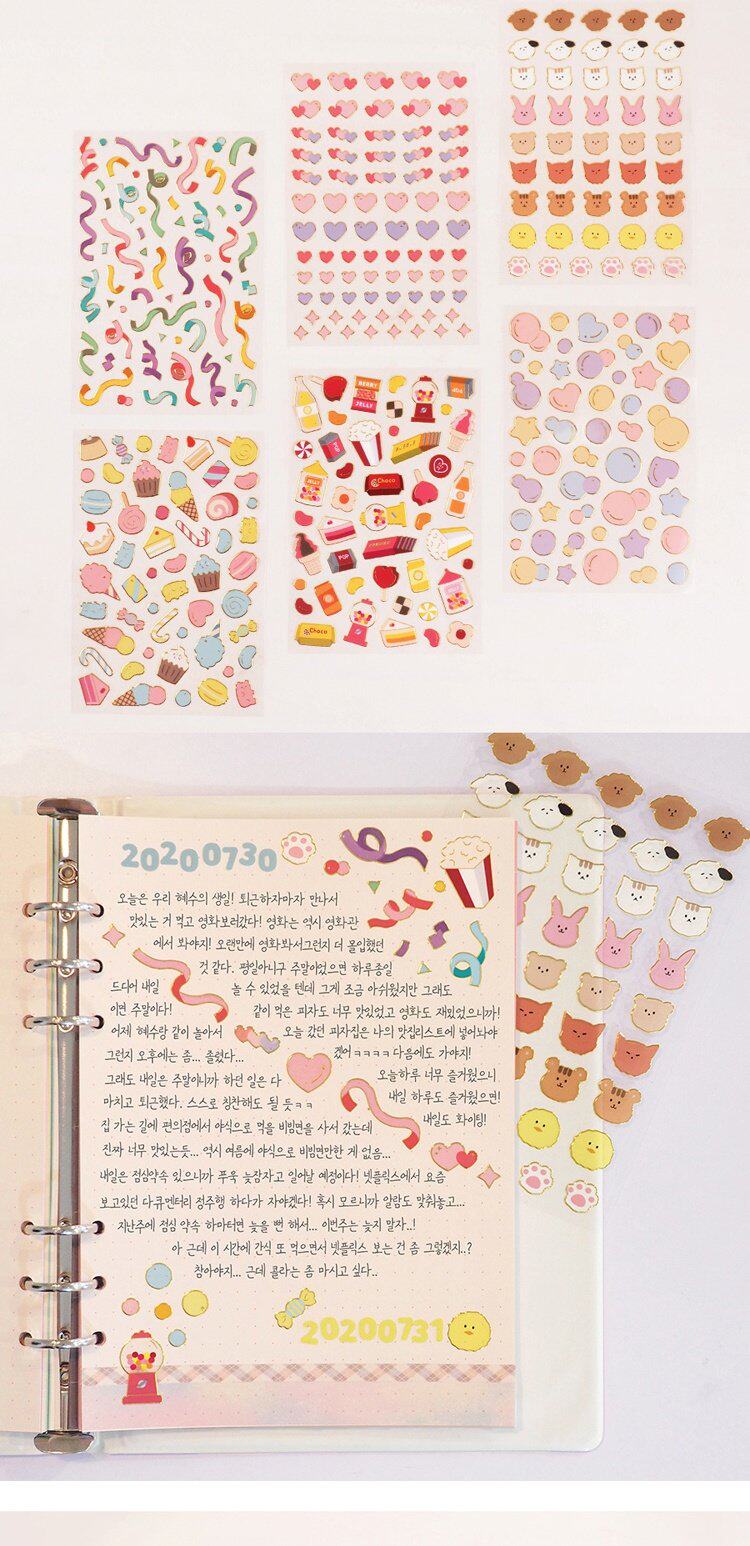 BERRY
JELLY
POP
JELLY
Choco
POP
Choco
20200730
오늘은 우리 혜수의 생일! 퇴근하자마자 만나서
맛있는 거 먹고 영화보러갔다! 영화는 역시 영화관
에서 봐야지! 오랜만에 영화봐서그런지 더 몰입했던
것 같다. 평일아니구 주말이었으면 하루종일
드디어 내일 놀 수 있었을 텐데 그게 조금 아쉬웠지만 그래도
이면 주말이다! 같이 먹은 피자도 너무 맛있었고 영화도 재밌었으니까!
어제 혜수랑 같이 놀아서 오늘 갔던 피자집은 나의 맛집리스트에 넣어놔야
그런지 오후에는 좀... 졸렸다... 겠어ㅋㅋㅋㅋ다음에도 가야지!
그래도 내일은 주말이니까 하던 일은 다 오늘하루 너무 즐거웠으니
마치고 퇴근했다. 스스로 칭찬해도 될 듯ㅋㅋ 내일 하루도 즐거웠으면!
집 가는 길에 편의점에서 야식으로 먹을 비빔면을 사서 갔는데 내일도 화이팅!
진짜 너무 맛있는듯... 역시 여름에 야식으로 비빔면만한 게 없음...
내일은 점심약속 있으니까 푸욱 늦잠자고 일어날 예정이다! 넷플릭스에서 요즘
보고있던 다큐멘터리 정주행 하다가 자야겠다! 혹시 모르니까 알람도 맞춰놓고...
지난주에 점심 약속 하마터면 늦을 뻔 해서... 이번주는 늦지 말자..!
아 근데 이 시간에 간식 또 먹으면서 넷플릭스 보는 건 좀 그렇겠지..?
참아야지... 근데 콜라는 좀 마시고 싶다..
20200731